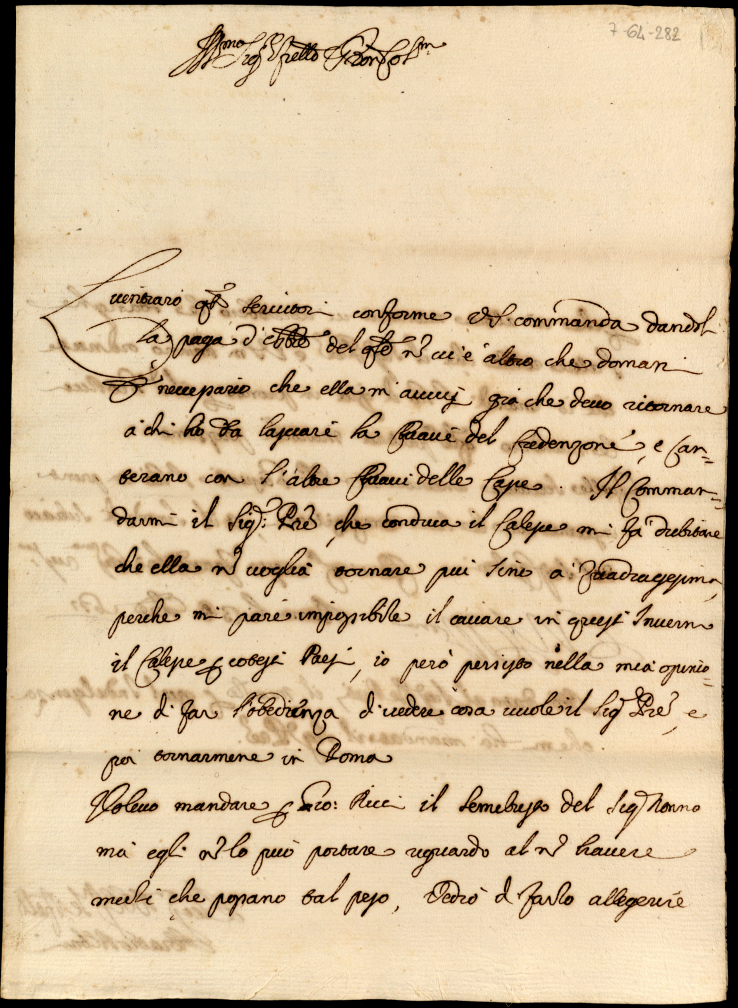 7-64-282
Ill.mo Sig.r fr̃ello P̃ron Col.m
Licentiarò q.ti servitori conforme V.S. commanda dandoli
la paga d' 8bre del q.to nõ vi è altro che domani
È necessario che ella m'avvisi già che devo ritornare
à chi hò da lasciare la chiave del Credenzone, e Can-
terano con l'altre chiavi delle Casse. Il Comman-
darmi il Sig.r P̃re, che conduca il Calesse mi fà dubitare
che ella nõ voglia tornare più sino à Quadragesima,
perche mi pare impossibile il cavare in questi Inverni
il Calesse p̃ cotesti Paesi, io però persisto nella mia opinio-
ne di far l'obedienza di vedere cosa vuole il Sig.r P̃re, e
poi tornarmene in Roma
Volevo mandare p̃ Gio: Ricci il semebusto del Sig.r Nonno
mà egli nõ lo può portare riguardo al nõ havere
muli che possano tal peso, vedrò di farlo allegerire